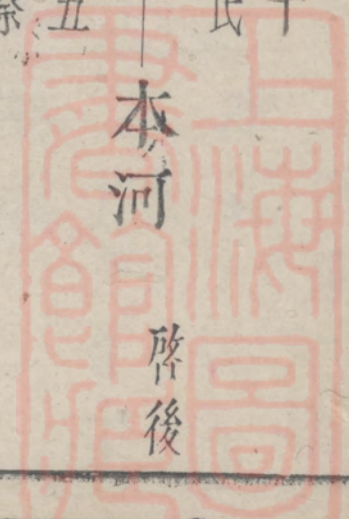 氏
本河
啓後
五
上海圖
書館藏